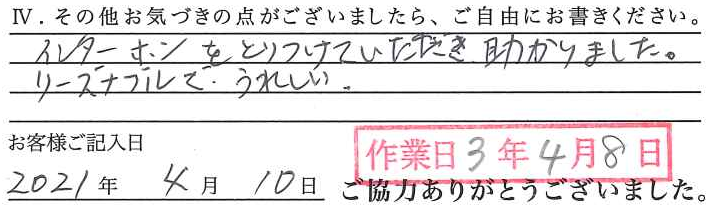 Ⅳ．その他お気づきの点がございましたら、ご自由にお書きください。
インターホンをとりつけていただき助かりました。
リーズナブルで、うれしい。
お客様ご記入日
作業日3年4月8日
2021年4月10日 ご協力ありがとうございました。